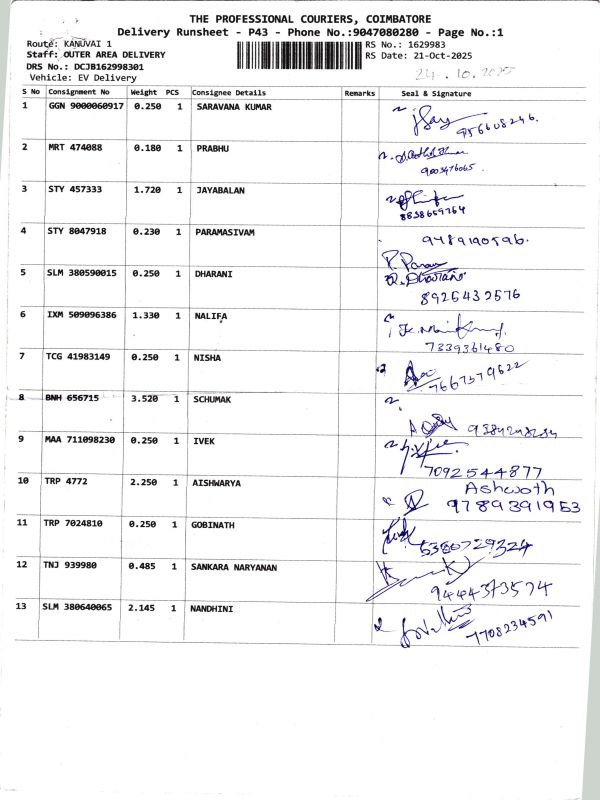 THE PROFESSIONAL COURIERS, COIMBATORE
Delivery Runsheet - P43 - Phone No.:9047080280 - Page No.:1
Route: KANUVAI 1
RS No.: 1629983
Staff: OUTER AREA DELIVERY
RS Date: 21-Oct-2025
DRS No.: DCJB162998301
24.10.2025
Vehicle: EV Delivery
S No Consignment No Weight PCS Consignee Details Remarks Seal & Signature
1 GGN 9000060917 0.250 1 SARAVANA KUMAR
956608246.
2 MRT 474088 0.180 1 PRABHU
9003476065.
3 STY 457333 1.720 1 JAYABALAN
8838659764
4 STY 8047918 0.230 1 PARAMASIVAM
9489190596.
5 SLM 380590015 0.250 1 DHARANI
8925432576
6 IXM 509096386 1.330 1 NALIFA
7339361480
7 TCG 41983149 0.250 1 NISHA
7667579622
8 BNH 656715 3.520 1 SCHUMAK
9 MAA 711098230 0.250 1 IVEK
7092544877
10 TRP 4772 2.250 1 AISHWARYA
Ashwoth
9789391953
11 TRP 7024810 0.250 1 GOBINATH
6380729324
12 TNJ 939980 0.485 1 SANKARA NARYANAN
9444373574
13 SLM 380640065 2.145 1 NANDHINI
7708234591